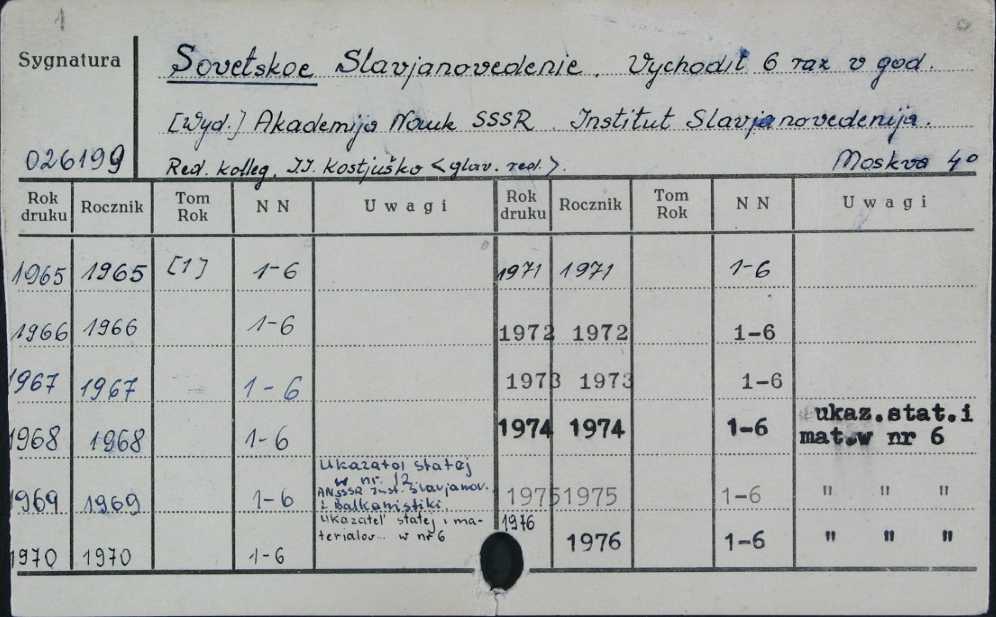 1
Sygnatura
Sovetskoe Slavjanovedenie. Vychodit 6 raz v god.
[Wyd.] Akademija Nauk SSSR. Institut Slavjanovedenija.
026199
Red. kolleg. I.I. Kostjuško <glav. red.>. Moskva 4°
Rok druku Rocznik Tom Rok N N Uwagi Rok druku Rocznik Tom Rok N N Uwagi
1965 1965 [1] 1-6 1971 1971 1-6
1966 1966 1-6 1972 1972 1-6
1967 1967 1-6 1973 1973 1-6
1968 1968 1-6 1974 1974 1-6 ukaz.stat.i
mat.w nr 6
Ukazatol statej
w nr. 12
1969 1969 1-6 AN SSSR Inst. Slavjanov.
i Balkanistiki.
1975 1975 1-6 " " "
Ukazatel' statej i ma-
terialov.. w nr 6
1970 1970 1-6 1976 1976 1-6 " " "